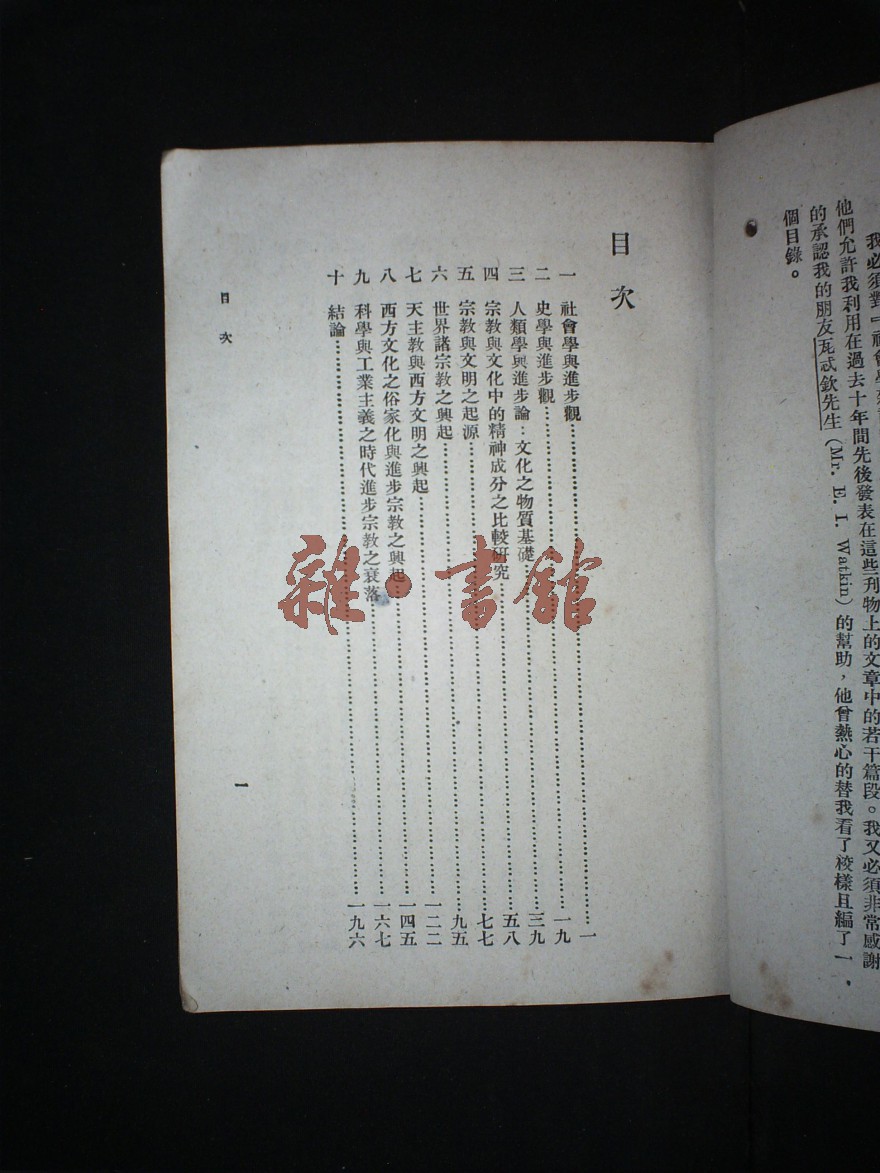 我必須對「社會學
他們允許我利用在過去十年間先後發表在這些刊物上的文章中的若干篇段。我又必須非常感謝
的承認我的朋友瓦忒欽先生(Mr. E. I. Watkin)的幫助,他曾熱心的替我看了校樣且編了一
個目錄。
目次
一 社會學與進步觀……一
二 史學與進步觀……一九
三 人類學與進步論:文化之物質基礎……三九
四 宗教與文化中的精神成分之比較研究……五八
五 宗教與文明之起源……七七
六 世界諸宗教之興起……九五
七 天主教與西方文明之興起……一二二
八 西方文化之俗家化與進步宗教之興起……一四五
九 科學與工業主義之時代進步宗教之衰落……一六七
十 結論……一九六
目次 一
雜·書館